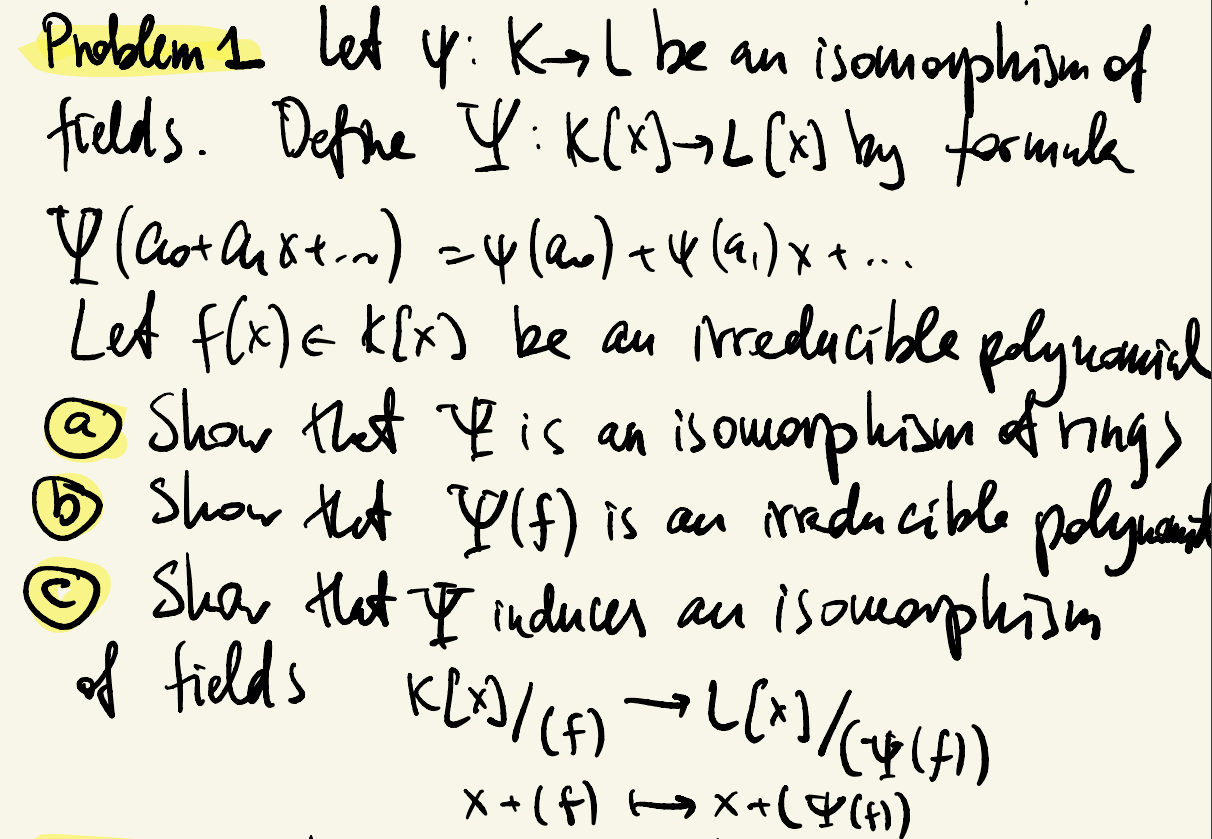 Problem 1 Let ψ: K→L be an isomorphism of
fields. Define Ψ: K[x]→L[x] by formula
Ψ(a₀+a₁x+...) = ψ(a₀)+ψ(a₁)x+...
Let f(x)∈K[x] be an irreducible polynomial
ⓐ Show that Ψ is an isomorphism of rings
ⓑ Show that Ψ(f) is an irreducible polynomial
ⓒ Show that Ψ induces an isomorphism
of fields K[x]/(f) → L[x]/(Ψ(f))
x+(f) ↦ x+(Ψ(f))